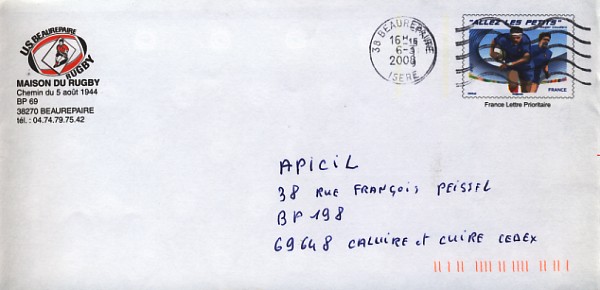 US BEAUREPAIRE
RUGBY
MAISON DU RUGBY
Chemin du 5 août 1944
BP 69
38270 BEAUREPAIRE
tél. : 04.74.79.75.42
38 BEAUREPAIRE
16H15
6-3
2008
ISERE
"ALLEZ LES PETITS"
FRANCE
France Lettre Prioritaire
APICIL
38 RUE FRANÇOIS PEISSEL
BP 198
69648 CALUIRE et CUIRE CEDEX